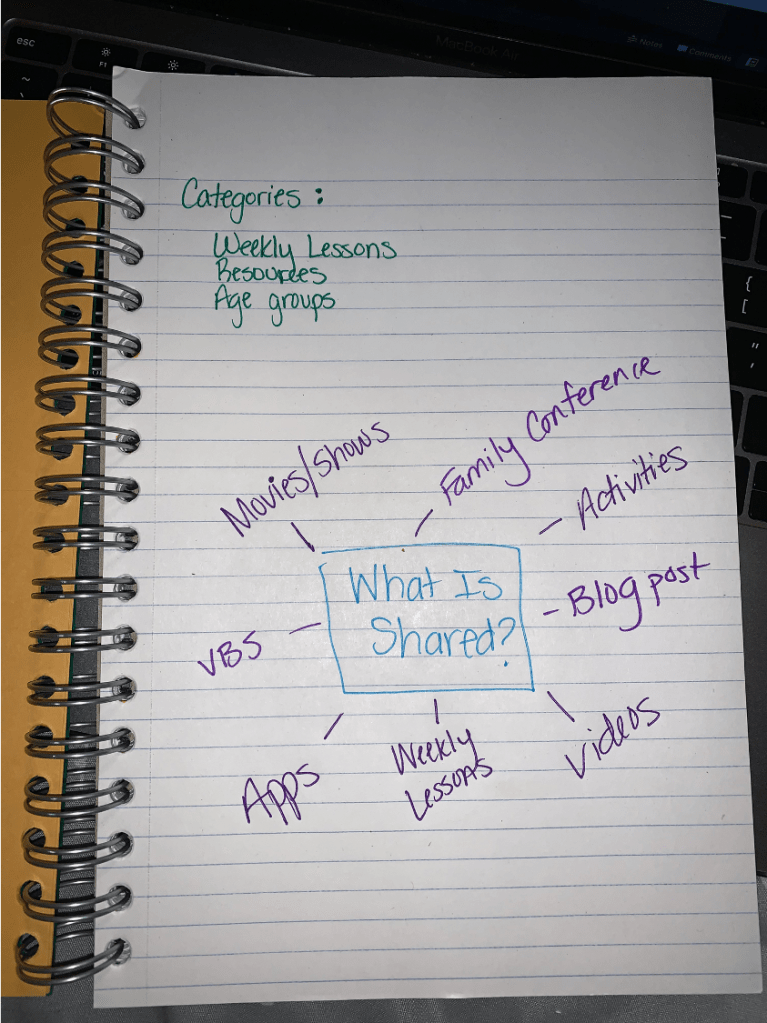 esc
F1
MacBook Air
Notes
Comments
~
`
{
[
"
'
Categories :
Weekly Lessons
Resources
Age groups
Movies/Shows
Family Conference
Activities
What Is
Shared?
Blog post
VBS
Apps
Weekly
Lessons
Videos